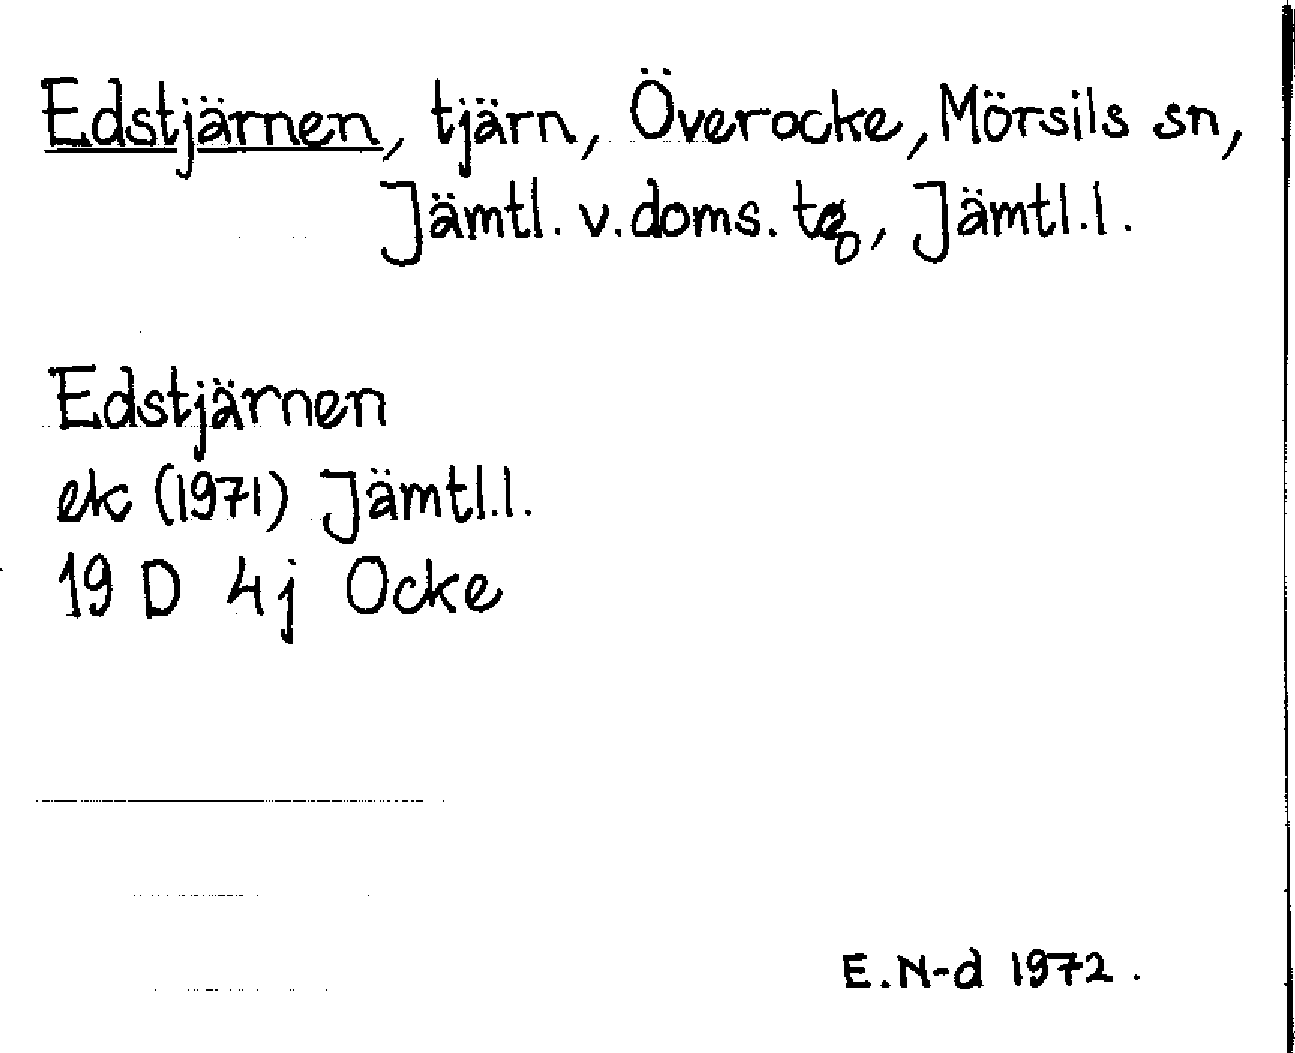 Edstjärnen, tjärn, Överocke, Mörsils sn,
Jämtl. v. doms. tg, Jämtl.l.
Edstjärnen
ek (1971) Jämtl.l.
19 D 4j Ocke
E.N-d 1972.